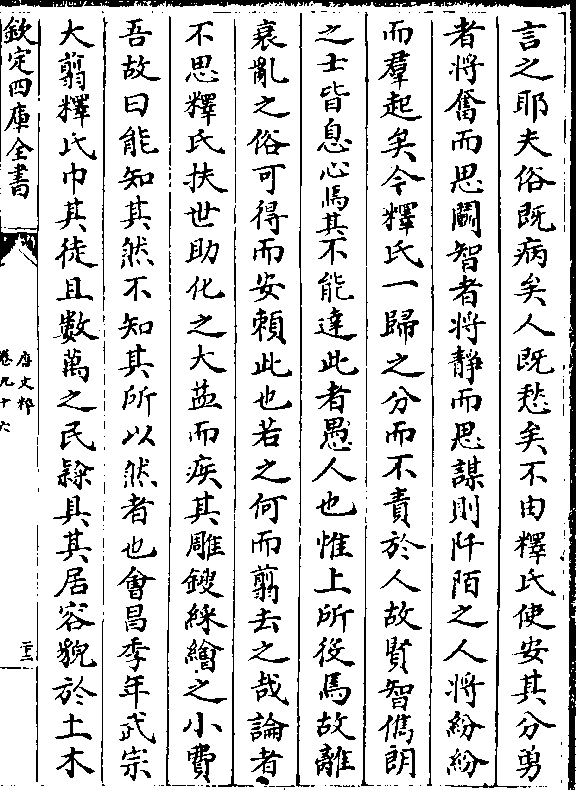 言之耶夫俗既病矣人既愁矣不由釋氏使安其分勇
者將奮而思鬭智者將靜而思謀則阡陌之人將紛紛
而羣起矣今釋氏一歸之分而不責於人故賢智儁朗
之士皆息心焉其不能達此者愚人也惟上所役焉故離
衰亂之俗可得而安賴此也若之何而翦去之哉論者
不思釋氏扶世助化之大益而疾其雕鎪綵繪之小費
吾故曰能知其然不知其所以然者也會昌季年武宗
大翦釋氏巾其徒且數萬之民隸具其居容貌於土木
欽定四庫全書
唐文粹
卷九十六